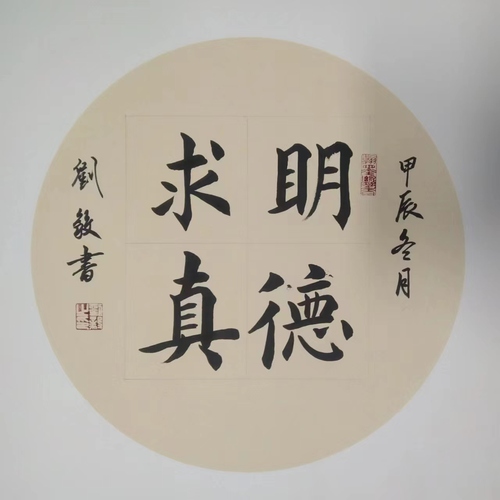 甲辰冬月
明德
求真
劉毅書